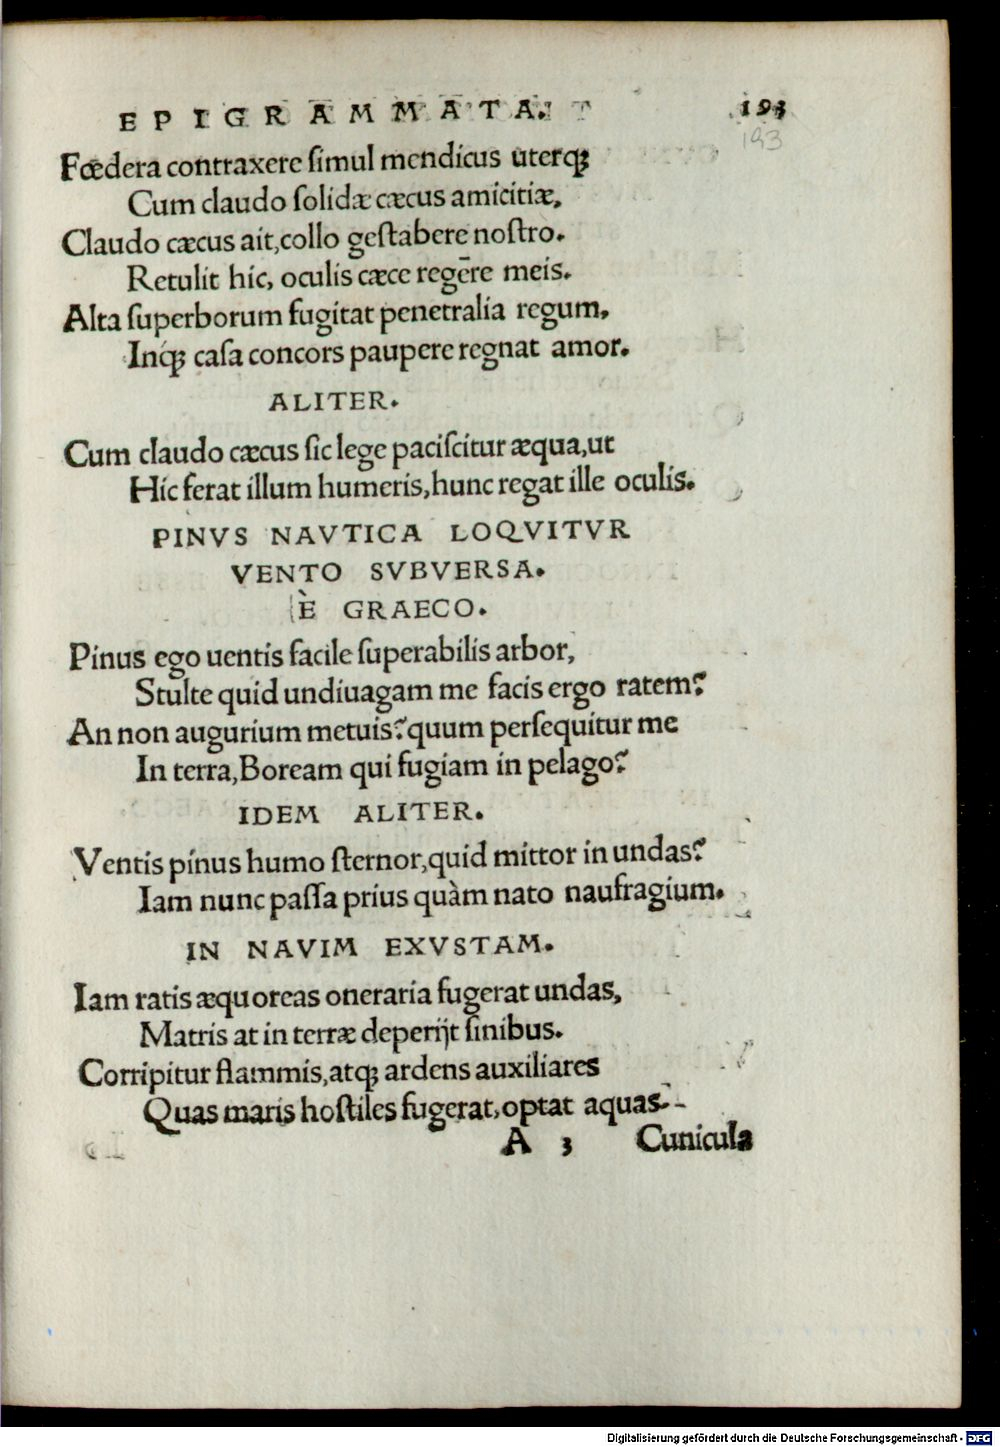 EPIGRAMMATA. 193
193
Fœdera contraxere ſimul mendicus uterqꝫ
Cum claudo ſolidæ cæcus amicitiæ,
Claudo cæcus ait, collo geſtabere noſtro.
Retulit hic, oculis cæce regēre meis.
Alta ſuperborum fugitat penetralia regum,
Inqꝫ caſa concors paupere regnat amor.
ALITER.
Cum claudo cæcus ſic lege paciſcitur æqua, ut
Hic ferat illum humeris, hunc regat ille oculis.
PINVS NAVTICA LOQVITVR
VENTO SVBVERSA.
È GRAECO.
Pinus ego uentis facile ſuperabilis arbor,
Stulte quid undiuagam me facis ergo ratem?
An non augurium metuis? quum perſequitur me
In terra, Boream qui fugiam in pelago?
IDEM ALITER.
Ventis pinus humo ſternor, quid mittor in undas?
Iam nunc paſſa prius quàm nato naufragium.
IN NAVIM EXVSTAM.
Iam ratis æquoreas oneraria fugerat undas,
Matris at in terræ deperijt ſinibus.
Corripitur flammis, atqꝫ ardens auxiliares
Quas maris hoſtiles fugerat, optat aquas.
A 3 Cunicula
Digitalisierung gefördert durch die Deutsche Forschungsgemeinschaft - DFG